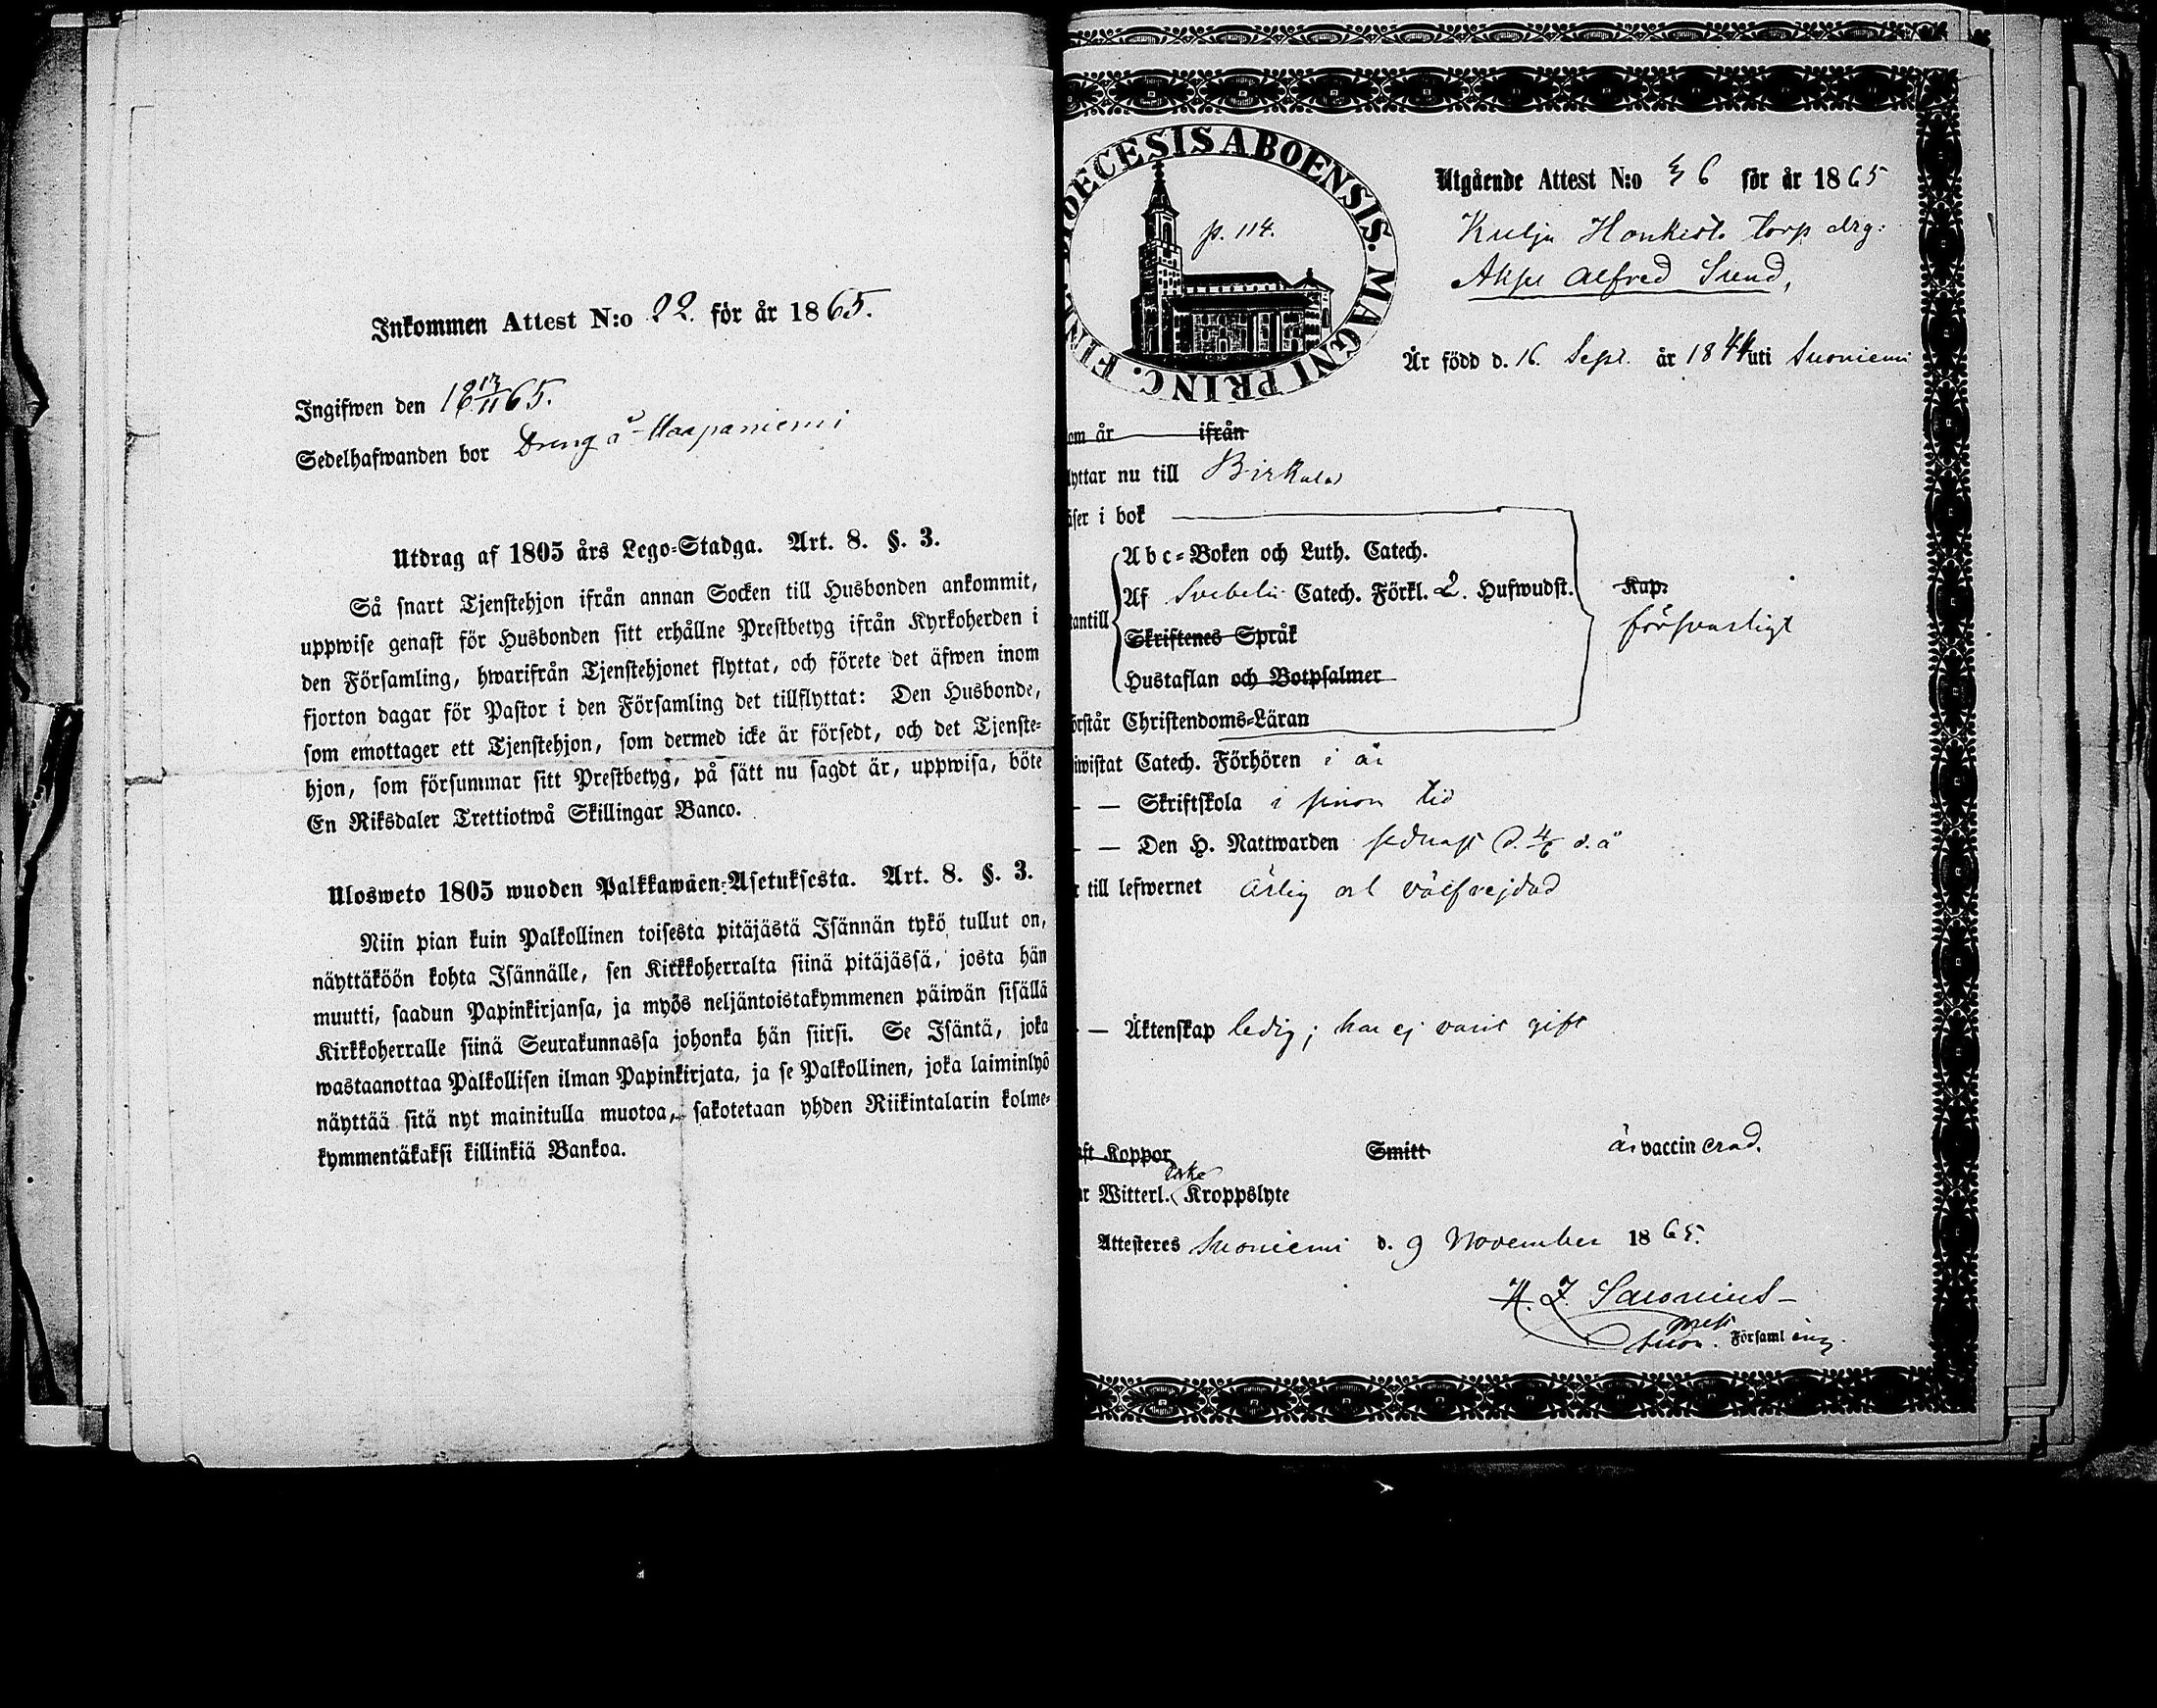 Inkommen Attest N:o 22. för år 1865.
Ingifwen den 18 13/11 65.
Sedelhafwanden bor Dreng å Haapaniemi
Utdrag af 1805 års Lego-Stadga. Art. 8. §. 3.
Så snart Tjenstehjon ifrån annan Socken till Husbonden ankommit,
uppwise genast för Husbonden sitt erhållne Prestbetyg ifrån Kyrkoherden i
den Församling, hwarifrån Tjenstehjonet flyttat, och förete det äfwen inom
fjorton dagar för Pastor i den Församling det tillflyttat: Den Husbonde,
som emottager ett Tjenstehjon, som dermed icke är försedt, och det Tjenste-
hjon, som försummar sitt Prestbetyg, på sätt nu sagdt är, uppwisa, böte
En Riksdaler Trettiotwå Skillingar Banco.
Ulosweto 1805 wuoden Palkkawäen-Asetuksesta. Art. 8. §. 3.
Niin pian kuin Palkollinen toisesta pitäjästä Isännän tykö tullut on,
näyttäköön kohta Isännälle, sen Kirkkoherralta siinä pitäjässä, josta hän
muutti, saadun Papinkirjansa, ja myös neljäntoistakymmenen päiwän sisällä
Kirkkoherralle siinä Seurakunnassa johonka hän siirsi. Se Isäntä, joka
wastaanottaa Palkollisen ilman Papinkirjata, ja se Palkollinen, joka laiminlyö
näyttää sitä nyt mainitulla muotoa, sakotetaan yhden Riikintalarin kolme-
kymmentäkaksi killinkiä Bankoa.
DIOECESIS ABOENSIS. MAGNI PRINC. FINL.
p. 114.
Utgående Attest N:o 36 för år 1865
Kulju Honkisto torp drg:
Axel Alfred Sund,
Är född d. 16. Sept. år 1844 uti Suoniemi
om år ifrån
lyttar nu till Birkala
äser i bok
Abc-Boken och Luth. Catech.
Af Svebelii Catech. Förkl. 2. Hufwudst.
Kap.
antill
försvarligt
Skriftenes Språk
Hustaflan och Botpsalmer
örstår Christendoms-Läran
iwistat Catech. Förhören i år
— — Skriftskola i sinom tid
— — Den H. Nattwarden sednast d. 4/6 d. å
r till lefwernet ärlig och välfrejdad
— — Äktenskap ledig; har ej varit gift
ft Koppor Smitt är vaccinerad.
icke
r Witterl. Kroppslyte
Attesteres Suoniemi d. 9 November 1865.
Suon. Församling.